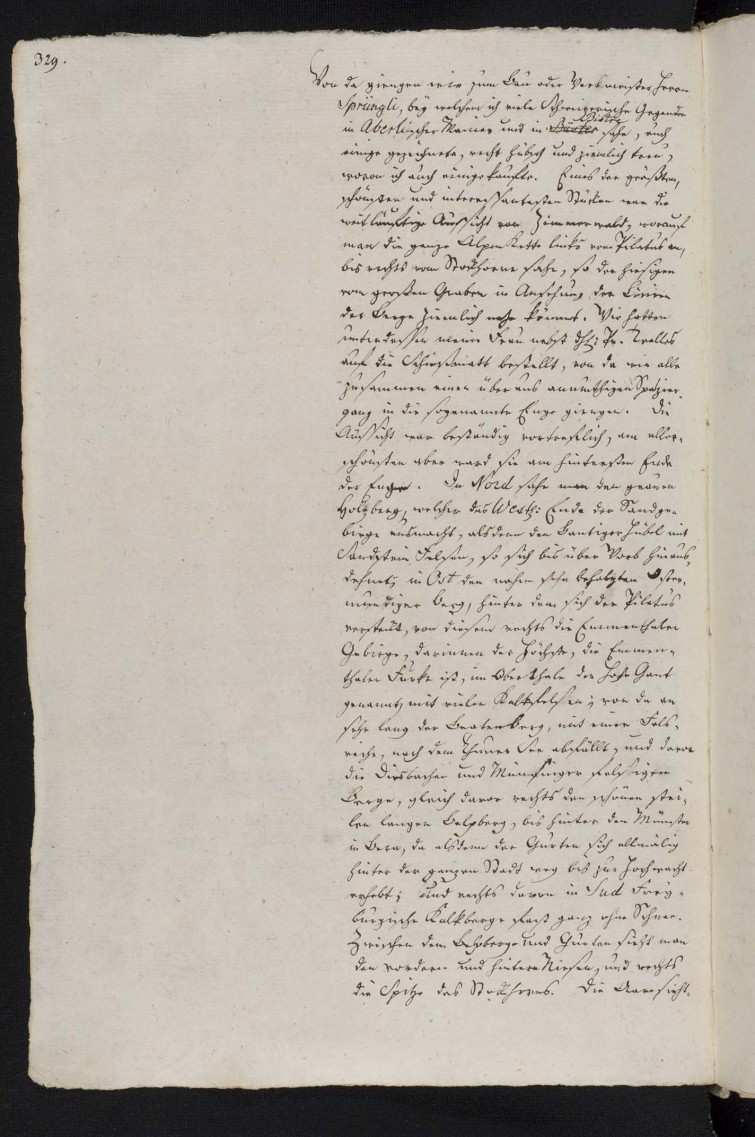 329.
Von da giengen wir zum Bau oder Werkmeister Herrn
Sprüngli, bey welchem ich viele Schweizerische Gegenden
in Aberlischer Manier und in Bistre sahe, auch
einige gezeichnete, recht hübsch und ziemlich treu,
wovon ich auch einige kaufte. Eines der größten,
schönsten und interessantesten Stücken war die
weitläuftige Aussicht von Zimmerwald, worauf
man die ganze Alpen Kette links vom Pilatus an,
bis rechts vom Stockhorn sahe, so der hiesigen
vom großen Graben in Ansehung der Linien
der Berge ziemlich nahe kommt. Wir hatten
unterdessen meine Frau nebst Pr. Tralles
auf die Schüzmatt bestellt, von da wir alle
zusammen einen überaus anmuthigen Spazier-
gang in die sogenannte Enge giengen. Die
Aussicht war beständig vortreflich, am aller-
schönsten aber ward sie am hintersten Ende
der Enge. In Nord sahe man den grauen
Holzberg, welcher das Westl: Ende der Sandge-
birge ausmacht, alsdenn den Bantiger Hübel mit
Sandstein Felsen, so sich bis über Worb hinaus
dehnet, in Ost den nahen sehr beholzten Oster-
mundiger Berg, hinter dem sich der Pilatus
versteckt, von diesem rechts die Emmenthaler
Gebirge, darinnen der Höchste, die Emmen-
thaler Furke ist, im Oberthale der Hohe Gant
genannt, mit vielen Kalkfelsen; von da an
sehr lang der Beatenberg, mit einer Fels-
reihe, nach dem Thuner See abfällt, und davor
die Diesbacher und Münsinger felsigen
Berge, gleich davor rechts den schönen stei-
len langen Belpberg, bis hinter den Münster
in Bern, da alsdenn der Gurten sich allmälig
hinter der ganzen Stadt weg bis zur Hochwacht
erhebt; und rechts davon in Sud Frey-
burgische Kalkberge fast ganz ohne Schnee.
Zwischen dem Belpberge und Gurten sieht man
den vordern und hintern Niesen, und rechts
die Spitze des Stockhorns. Die Aare sieht